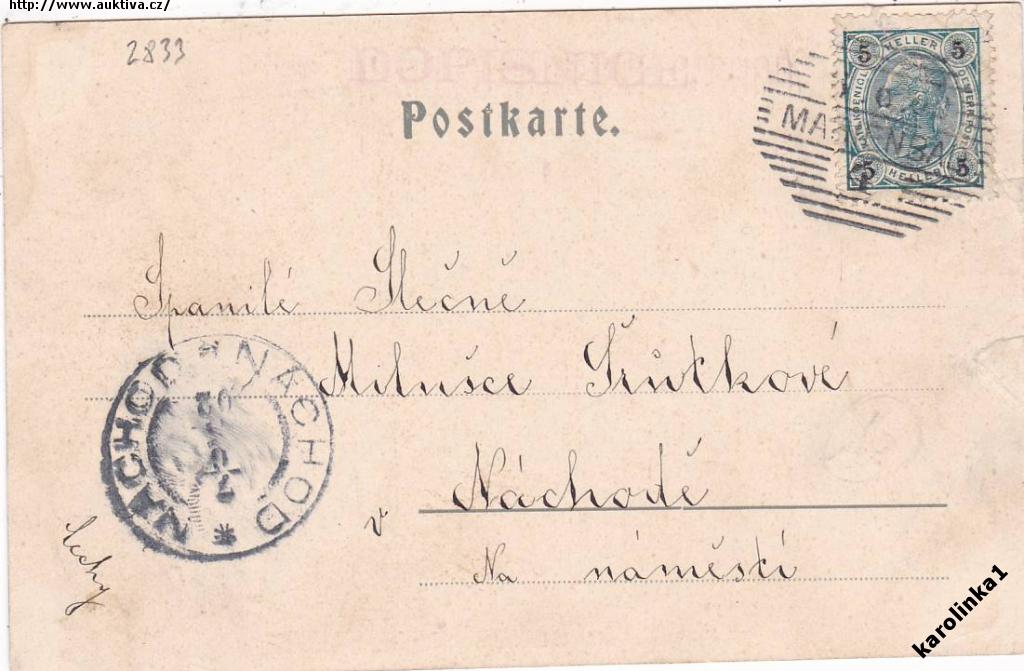 http://www.auktiva.cz/
2833
DOPISNICE
Postkarte.
5 HELLER 5
5 HELLER 5
MA NBA
Spanilé Slečně
Milušce Šrůtkové
v Náchodě
Na náměstí
Čechy
NÁCHOD * NACHOD *
02
karolinka1